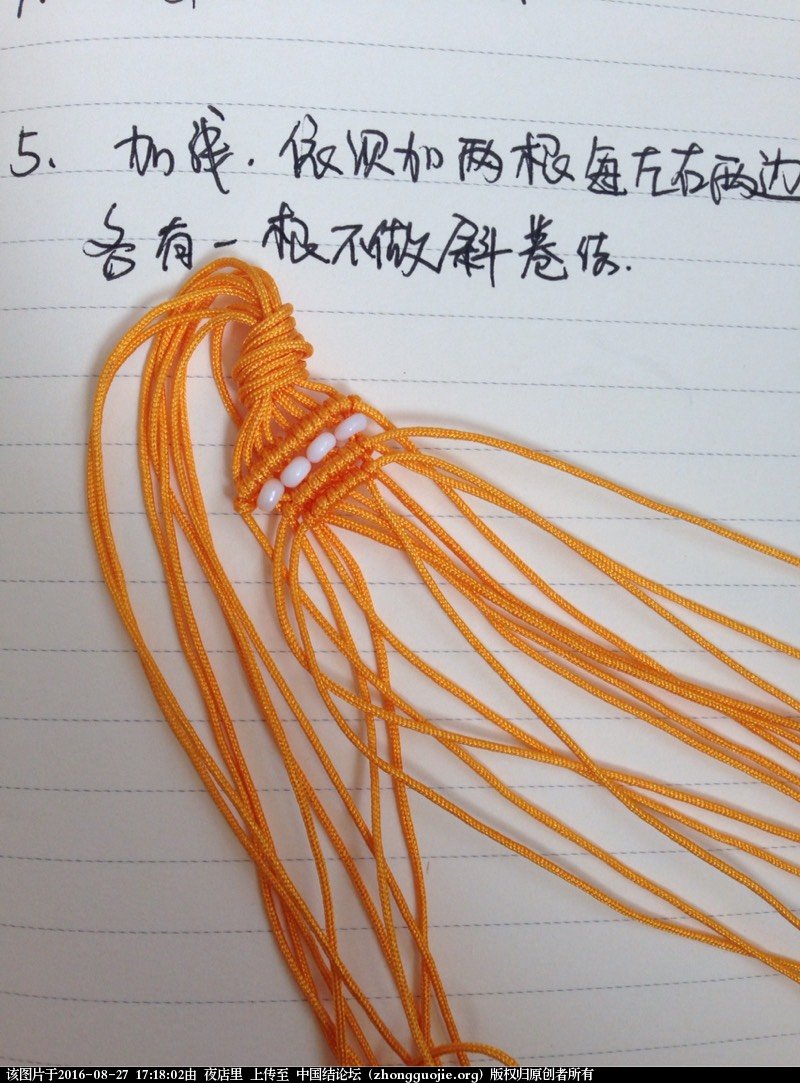 5. 加线.依次加两根每左右两边
各有一根不做斜卷结.
该图片于2016-08-27 17:18:02由 夜店里 上传至 中国结论坛 (zhongguojie.org) 版权归原创者所有